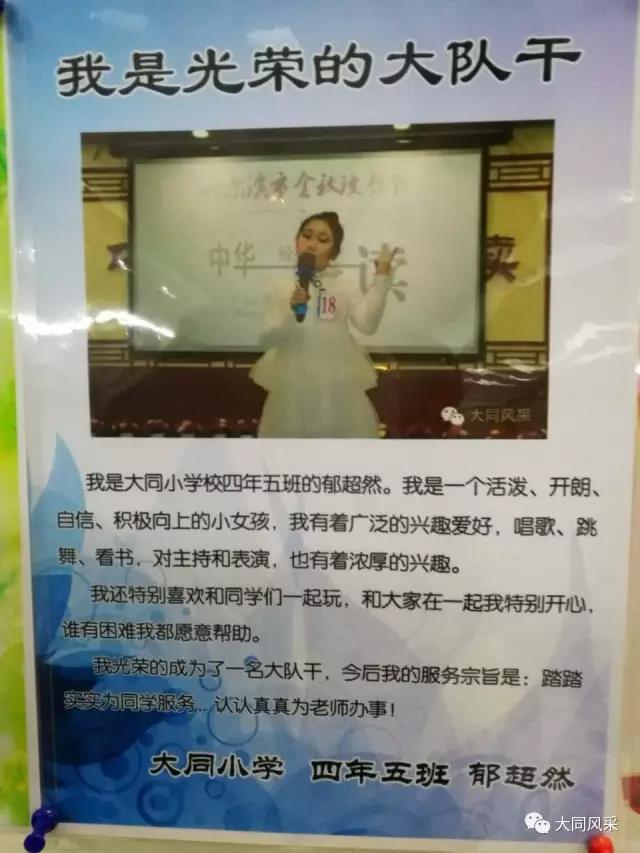 我是光荣的大队干
中华
读
18
大同风采
我是大同小学校四年五班的郁超然。我是一个活泼、开朗、
自信、积极向上的小女孩，我有着广泛的兴趣爱好，唱歌、跳
舞、看书，对主持和表演，也有着浓厚的兴趣。
我还特别喜欢和同学们一起玩，和大家在一起我特别开心，
谁有困难我都愿意帮助。
我光荣的成为了一名大队干，今后我的服务宗旨是：踏踏
实实为同学服务，认认真真为老师办事！
大同小学 四年五班 郁超然
大同风采